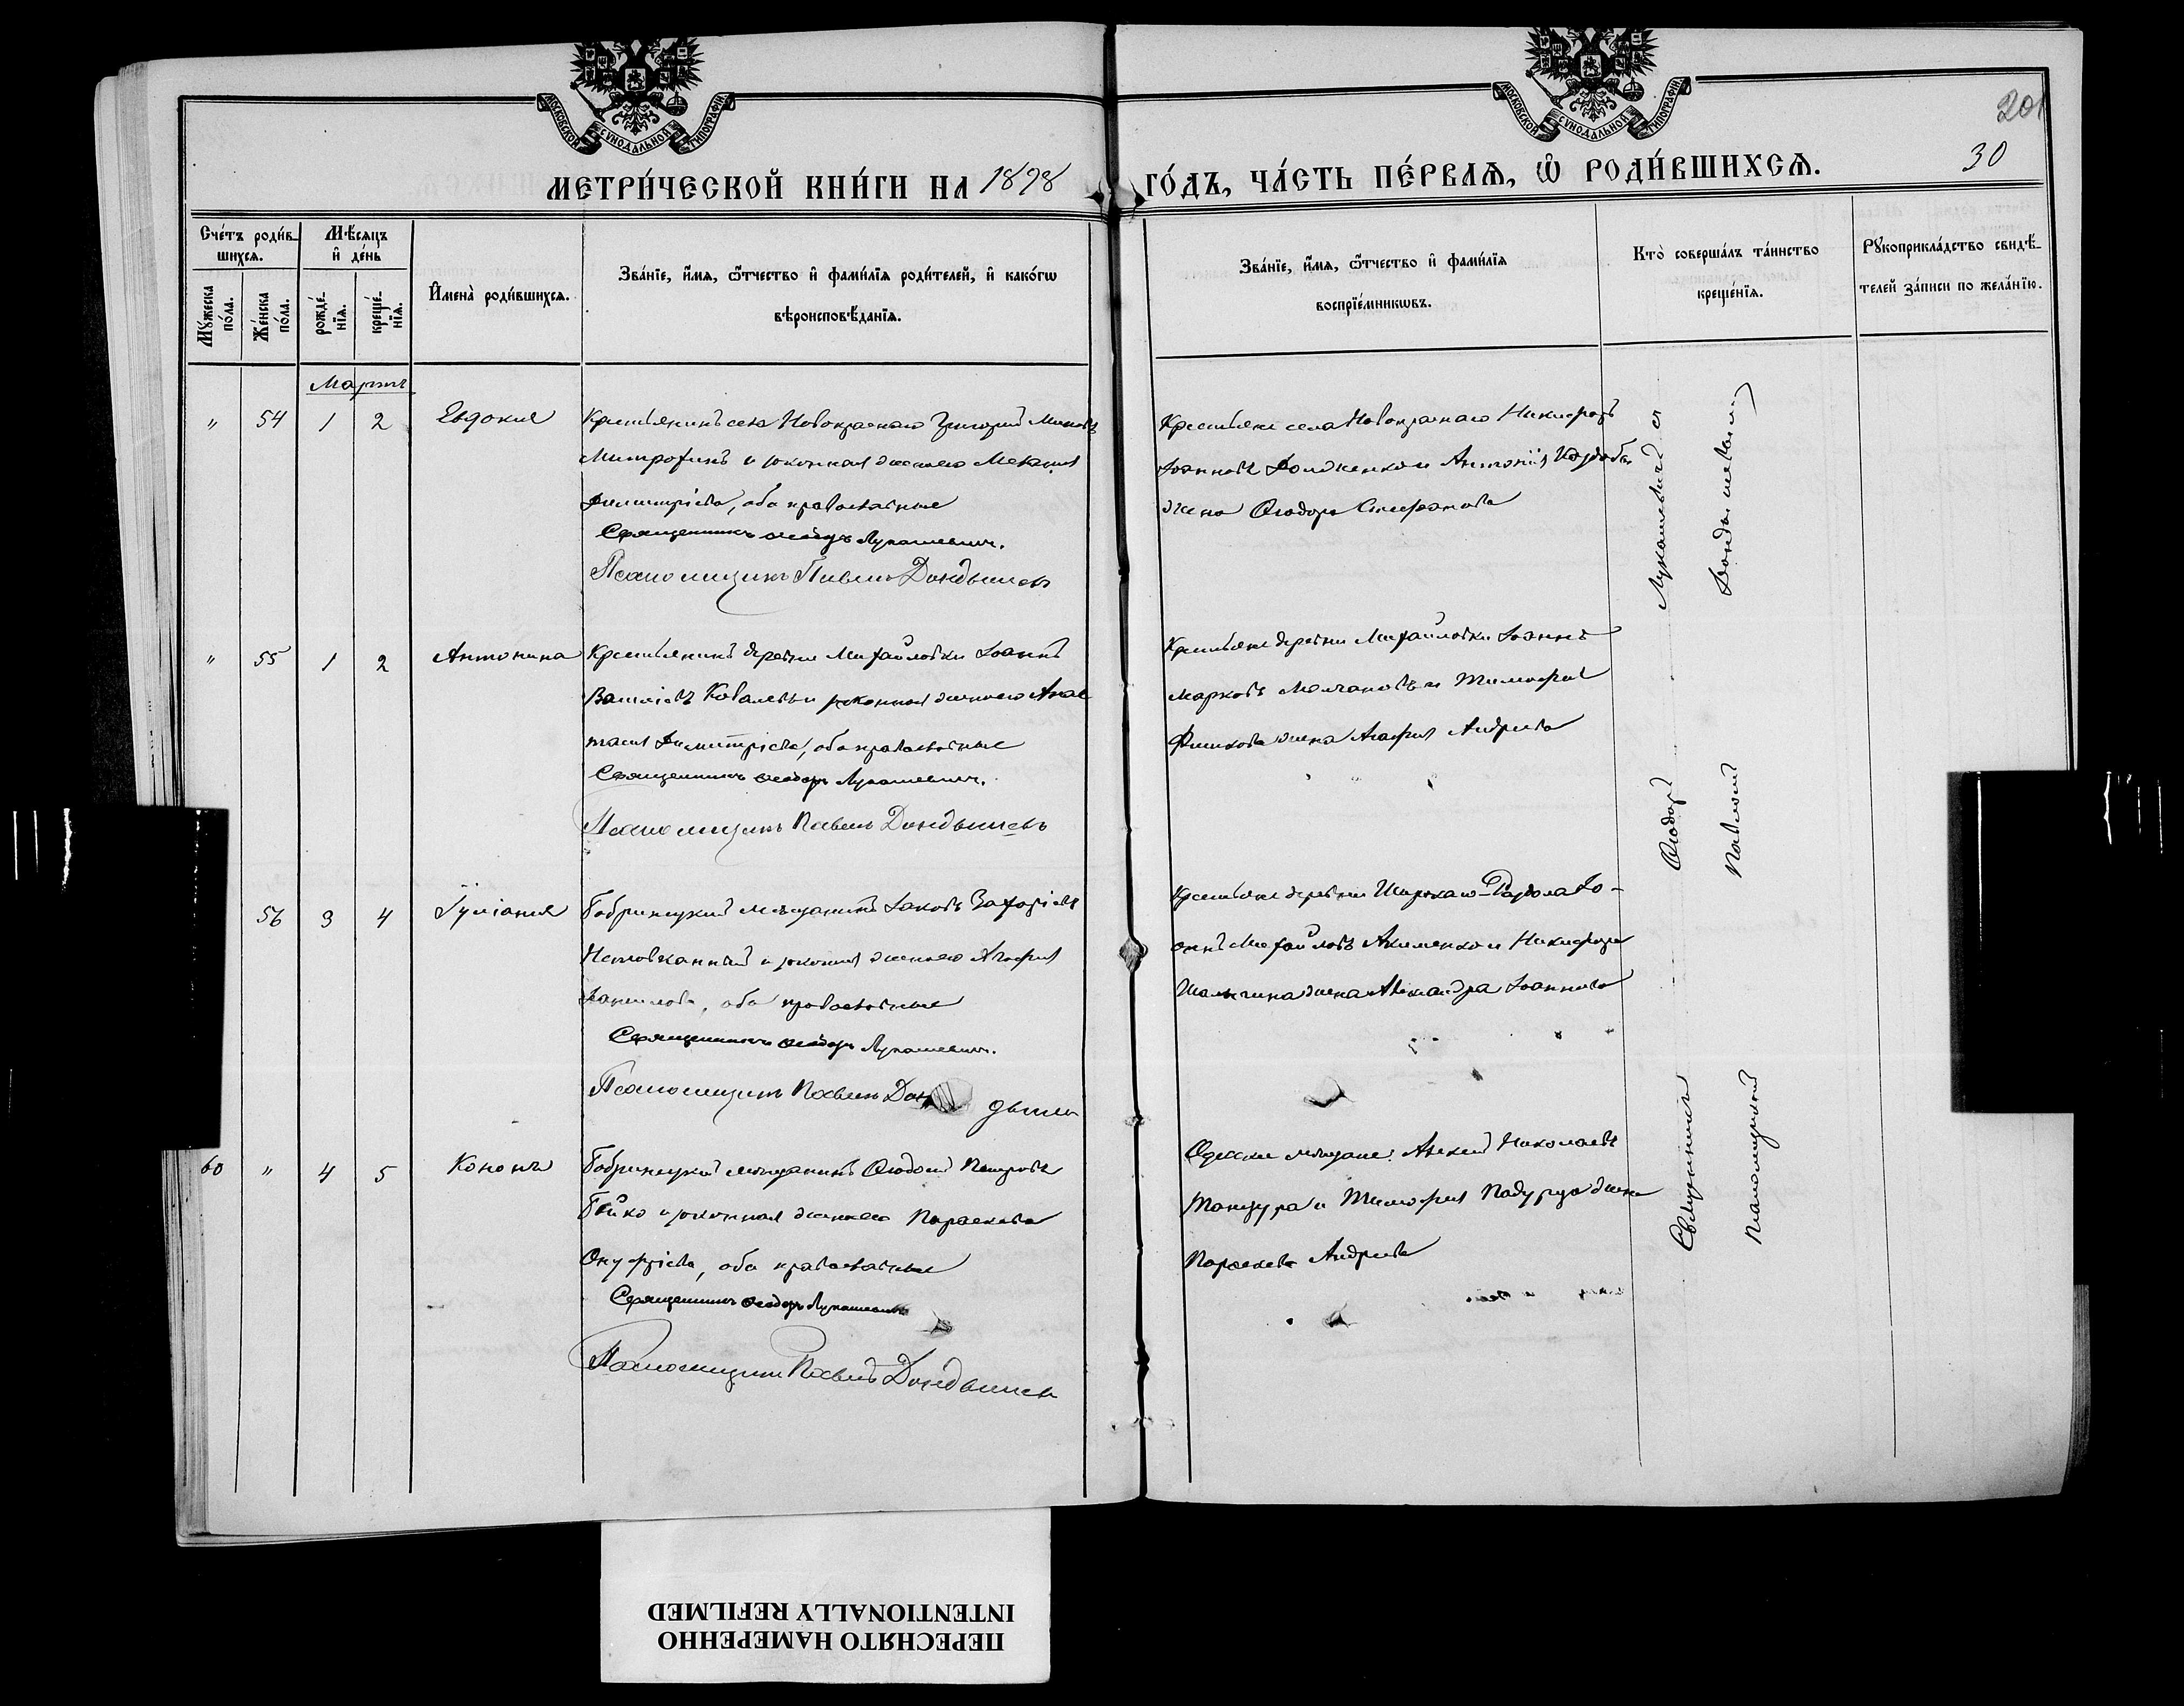 МОСКОВСКОЙ СѴНОДАЛЬНОЙ ТИПОГРАФІИ
МОСКОВСКОЙ СѴНОДАЛЬНОЙ ТИПОГРАФІИ
201
30
МЕТРИ́ЧЕСКОЙ КНИ́ГИ НА 1898 ГО́ДЪ, ЧА́СТЬ ПЕ́РВАѦ, Ѡ҆ РОДИ́ВШИХСѦ.
Сче́тъ роди́в-
шихсѧ.
Мꙋ́жеска по́ла.
Же́нска по́ла.
Мѣ́сѧцъ и҆ де́нь
рожде́-нїѧ.
креще́-нїѧ.
И҆мена̀ роди́вшихсѧ.
Зва́нїе, и҆́мѧ, ѻ҆́тчество и҆ фами́лїѧ роди́телей, и҆ како́гѡ
вѣроисповѣ́данїѧ.
Зва́нїе, и҆́мѧ, ѻ҆́тчество и҆ фами́лїѧ
воспрїе́мникѡвъ.
Кто̀ соверша́лъ та́инство
креще́нїѧ.
Рꙋкоприкла́дство свидѣ́-
телей за́писи по жела́нїю.
Мартъ
" 54 1 2 Евдокия
Крестьянинъ села Новокраснаго Григорий
Митрофинъ и законная жена его
Димитріева, оба православные
Священникъ Ѳеодоръ Лукашевич.
Псаломщикъ Павелъ Дондышевъ
Крестьяне села Новокраснаго Никифоръ
Іоанновъ Долженко и Антонія
жена Ѳеодора Стефанова
" 55 1 2 Антонина
Крестьянинъ деревни Михайловки Іоаннъ
Василіевъ Ковалевъ и законная жена его Анас
тасія Димитріева, оба православные
Священникъ Ѳеодоръ Лукашевич.
Псаломщикъ Павелъ Дондышевъ
Крестьяне деревни Михайловки Іоаннъ
Марковъ Молчановъ и Тимофея
жена Агафія Андреева
56 3 4 Іуліанія
Бобринецкий мещанинъ Іаковъ Захаріевъ
и законная жена его Агафія
Даніилова, оба православные
Священникъ Ѳеодоръ Лукашевич.
Псаломщикъ Павелъ Дон дышев
Крестьяне деревни Широкаго-Раздола Іо-
аннъ Михайловъ Акименко и Никифора
Шалыгина жена Александра Іоаннова
60 " 4 5 Кононъ
Бобринецкий мещанинъ Ѳеодосій Петровъ
Бойко и законная жена его Параскева
Онуфріева, оба православные
Священникъ Ѳеодоръ Лукашевичъ
Псаломщикъ Павелъ Дондышев
Одесские мещане: Алексей Николаевъ
Танцура и Тимофея жена
Параскева Андреева
Священникъ Ѳеодоръ Лукашевичъ съ
Псаломщикомъ Павломъ Дондышевымъ
ПЕРЕСНЯТО НАМЕРЕННО
INTENTIONALLY REFILMED